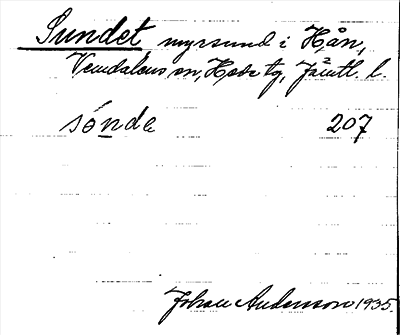 Sundet, myrsund i Hån,
Vemdalens sn, Hede tg, Jämtl. l.
sóndɐ 207
Johan Anderson 1935.